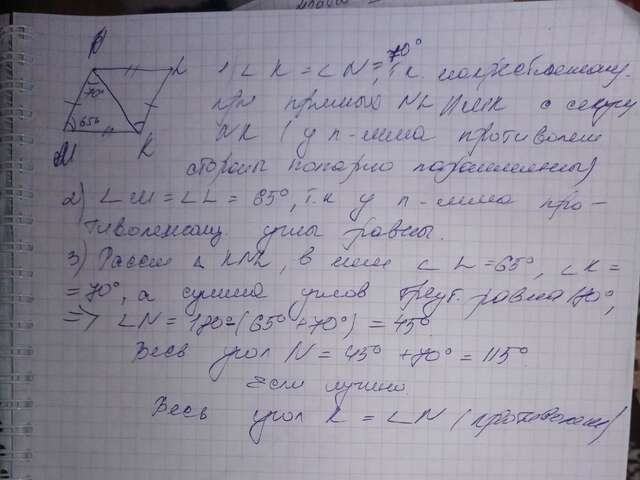 N
L
70°
65°
M
K
1) ∠K = ∠N = 70°, т.к. накрестлежащ.
при прямых NL и MK с секущ
NK (у п-мма противолеж
стороны попарно параллельны)
2) ∠M = ∠L = 65°, т.к у п-мма про-
тиволежащ. углы равны.
3) Рассм Δ KNL, в нём ∠L = 65°, ∠K =
= 70°, а сумма углов треуг. равна 180°,
=> ∠N = 180° - (65° + 70°) = 45°
Весь угол N = 45° + 70° = 115°
Если нужно
Весь угол K = ∠N (противолеж)